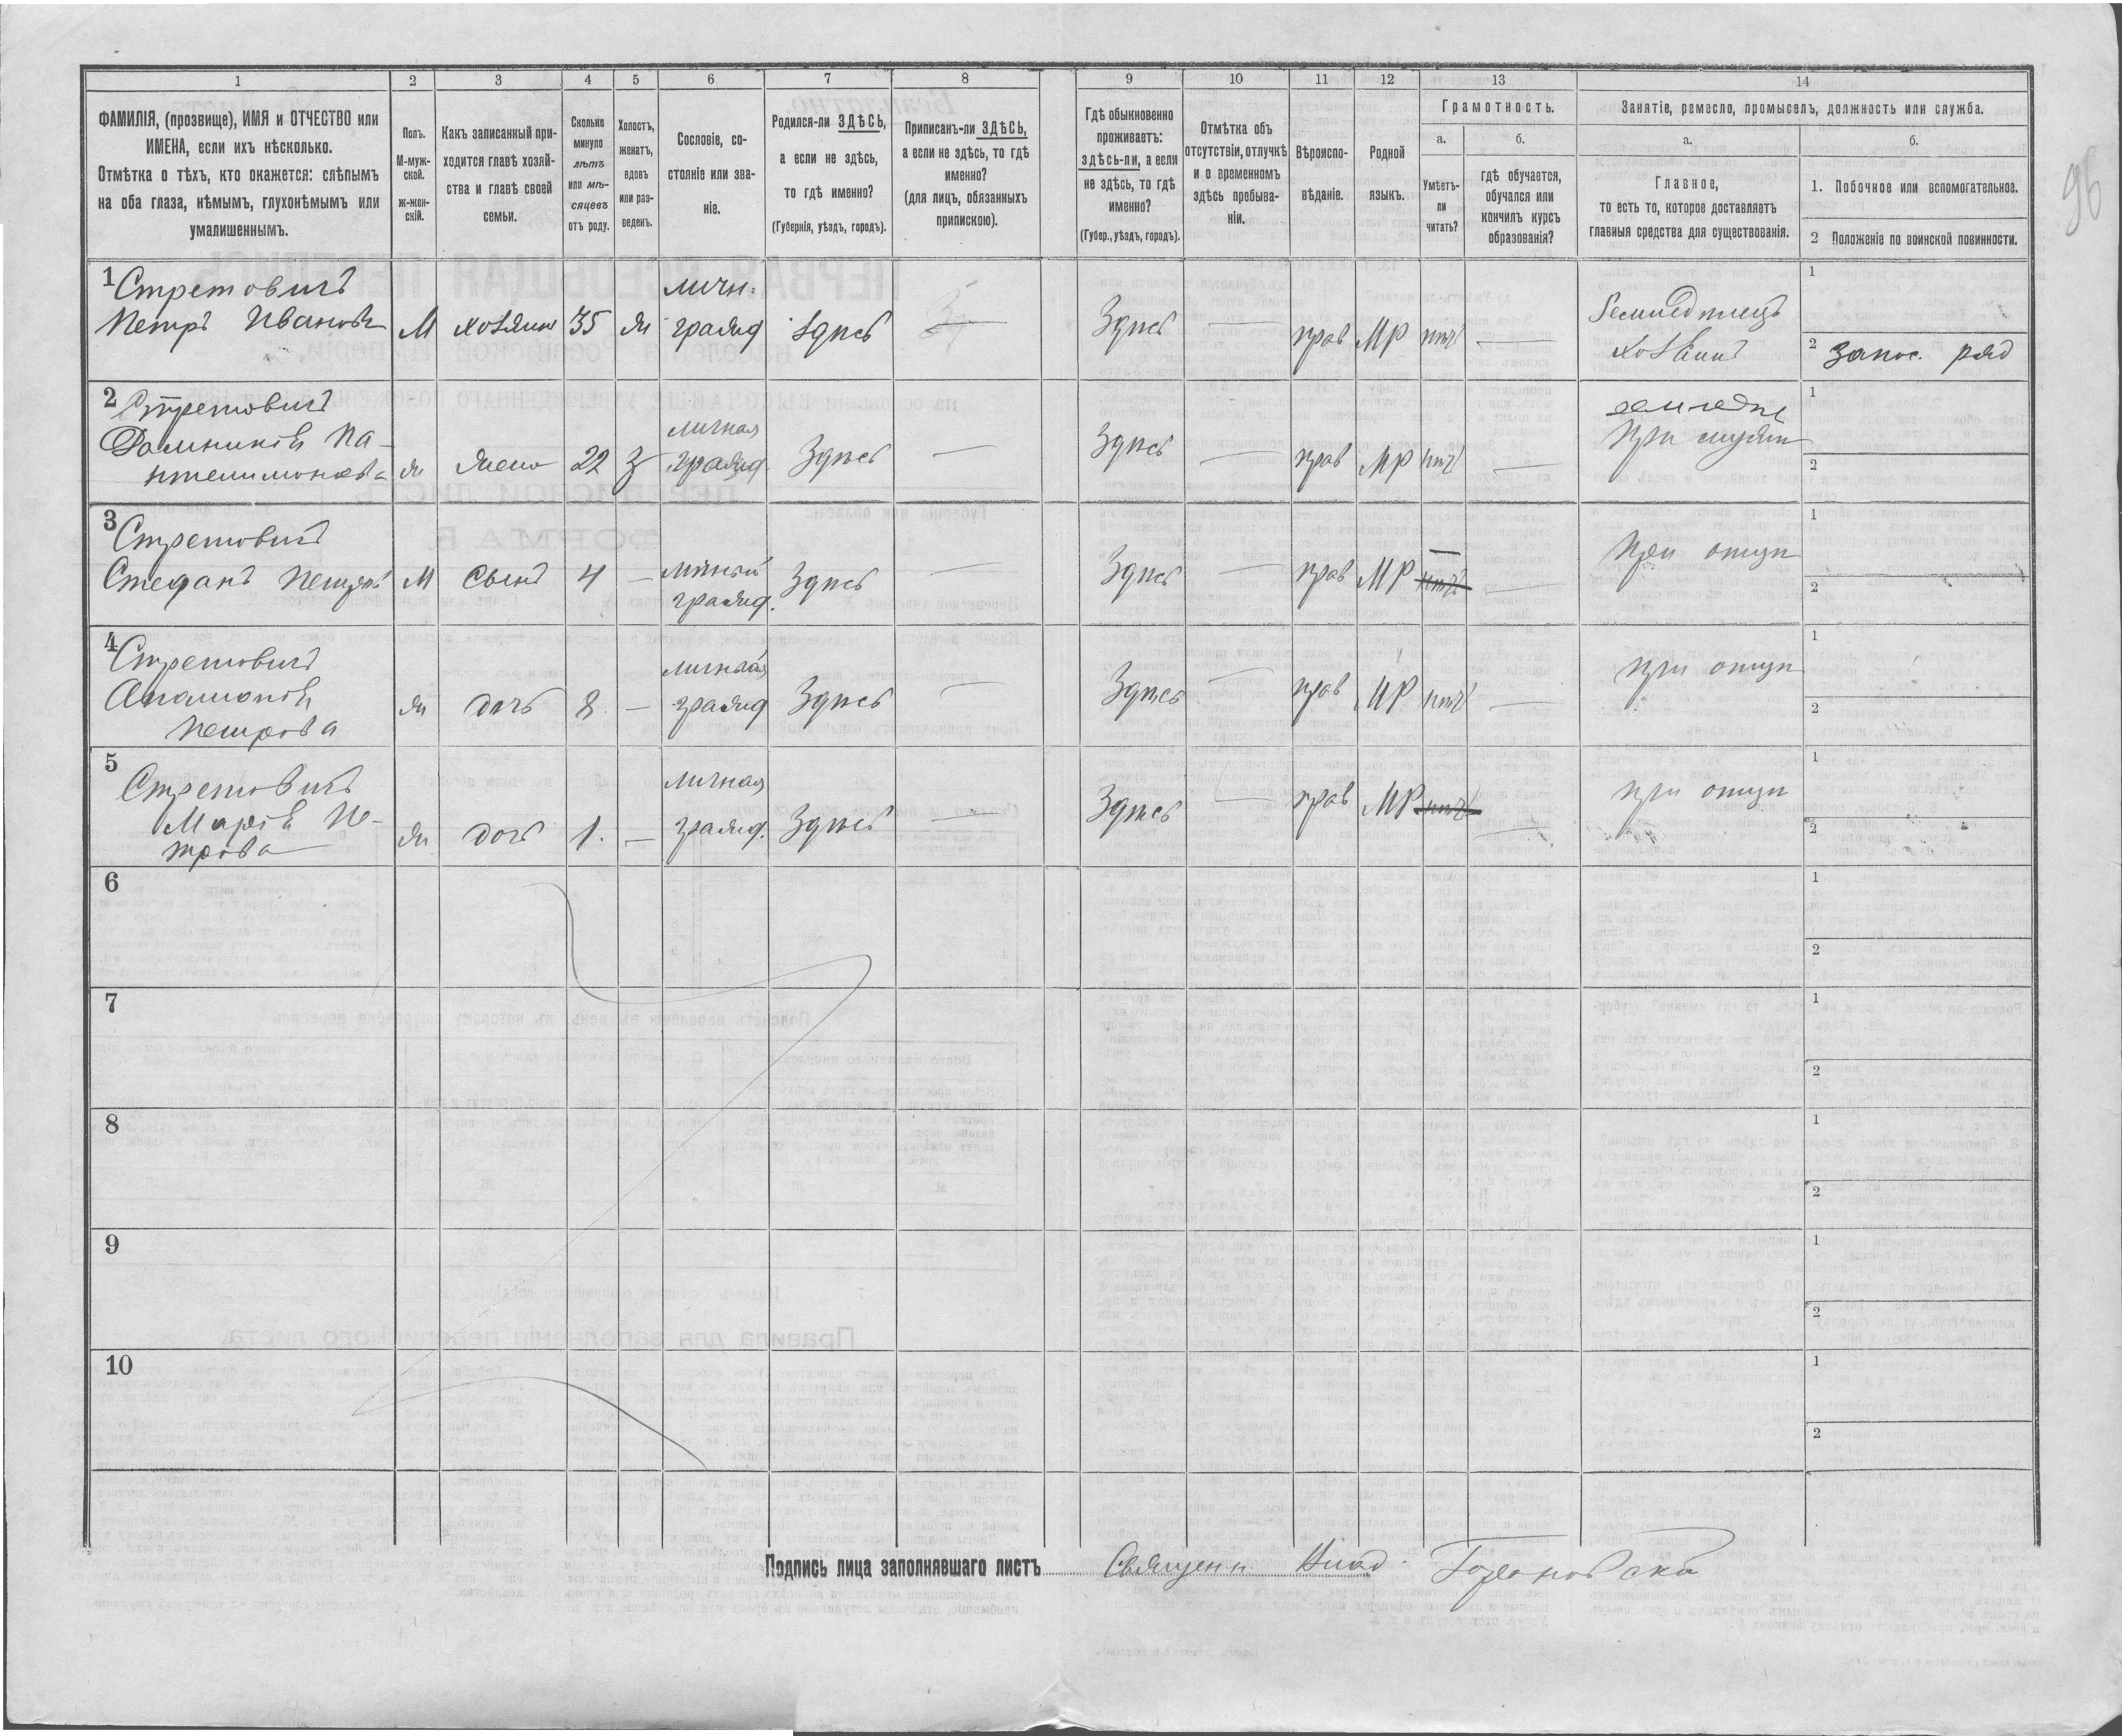 1 2 3 4 5 6 7 8 9 10 11 12 13 14
ФАМИЛІЯ, (прозвище), ИМЯ и ОТЧЕСТВО или
ИМЕНА, если ихъ нѣсколько.
Отмѣтка о тѣхъ, кто окажется: слѣпымъ
на оба глаза, нѣмымъ, глухонѣмымъ или
умалишеннымъ.
Полъ.
М-муж-
ской.
ж-жен-
скій.
Какъ записанный при-
ходится главѣ хозяй-
ства и главѣ своей
семьи.
Сколько
минуло
лѣтъ
или мѣ-
сяцевъ
отъ роду.
Холостъ,
женатъ,
вдовъ
или раз-
веденъ.
Сословіе, со-
стояніе или зва-
ніе.
Родился-ли ЗДѢСЬ,
а если не здѣсь,
то гдѣ именно?
(Губернія, уѣздъ, городъ).
Приписанъ-ли ЗДѢСЬ,
а если не здѣсь, то гдѣ
именно?
(для лицъ, обязанныхъ
припискою).
Гдѣ обыкновенно
проживаетъ:
здѣсь-ли, а если
не здѣсь, то гдѣ
именно?
(Губер., уѣздъ, городъ).
Отмѣтка объ
отсутствіи, отлучкѣ
и о временномъ
здѣсь пребыва-
ніи.
Вѣроиспо-
вѣданіе.
Родной
языкъ.
Грамотность.
а.
Умѣетъ-
ли
читать?
б.
гдѣ обучается,
обучался или
кончилъ курсъ
образованія?
Занятіе, ремесло, промыселъ, должность или служба.
а.
Главное,
то есть то, которое доставляетъ
главныя средства для существованія.
б.
1. Побочное или вспомогательное.
2 Положеніе по воинской повинности.
96
1 Стретовичъ личн. 1
Петръ Ивановъ М хозяинъ 35 ж гражд здѣсь — Здѣсь — прав МР нѣтъ —
хозяинъ 2 запас. ряд
2 Стретовичъ личная 1
Па-
нтелимонова ж жена 22 З гражд. Здѣсь — Здѣсь — прав МР нѣтъ — При мужѣ 2
3 Стретовичъ личный — При отцѣ 1
Стефанъ Петровъ М Сынъ 4 — гражд. Здѣсь — Здѣсь — прав МР нѣтъ — 2
4 Стретовичъ личная При отцѣ 1
Петрова ж дочь 8 — гражд Здѣсь — Здѣсь — прав МР нѣтъ — 2
5 Стретовичъ личная При отцѣ 1
Марія Пе-
трова ж дочь 1. — гражд. Здѣсь — Здѣсь — прав МР нѣтъ — 2
6 1
2
7 1
2
8 1
2
9 1
2
10 1
2
Подпись лица заполнявшаго листъ Священн.